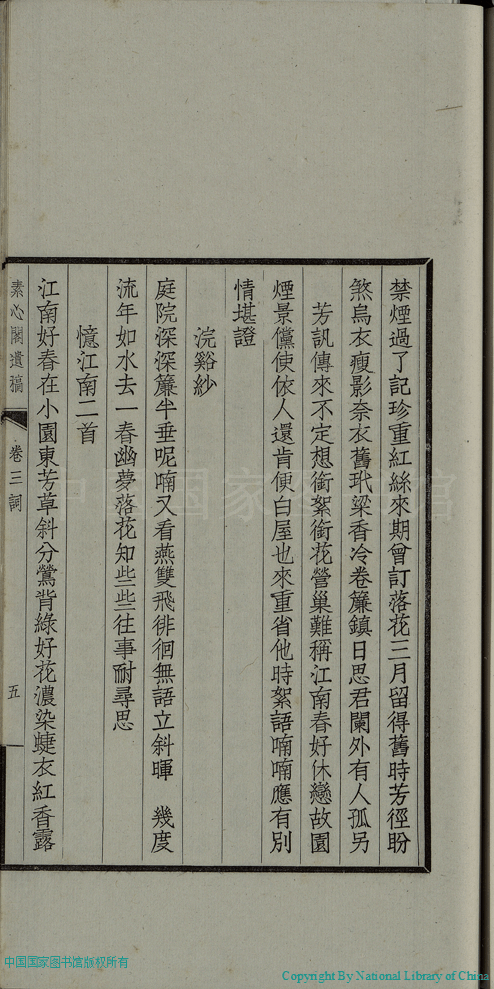 禁煙過了記珍重紅絲來期曾訂落花三月留得舊時芳徑盼
煞烏衣瘦影奈衣舊玳梁香冷卷簾鎮日思君闌外有人孤另
芳訊傳來不定想銜絮銜花營巢難稱江南春好休戀故園
煙景儻使依人還肯便白屋也來重省他時絮語喃喃應有別
情堪證
浣谿紗
庭院深深簾半垂呢喃又看燕雙飛徘徊無語立斜暉　幾度
流年如水去一春幽夢落花知些些往事耐尋思
憶江南二首
江南好春在小園東芳草斜分鶯背綠好花濃染蜨衣紅香露
素心閣遺稿
卷三詞
五
中国国家图书馆
中国国家图书馆版权所有
Copyright By National Library of China